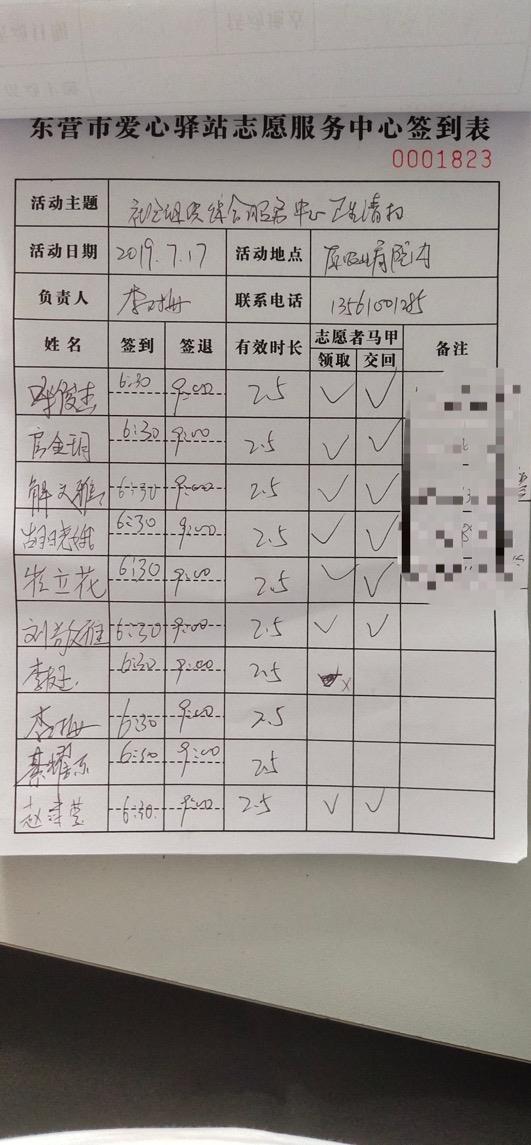 东营市爱心驿站志愿服务中心签到表
0001823
活动主题 社会组织综合服务中心卫生清扫
活动日期 2019.7.17 活动地点
负责人 联系电话 13561001285
姓名 签到 签退 有效时长 志愿者马甲 备注
领取 交回
6:30 9:00 2.5 ✓ ✓
6:30 9:00 2.5 ✓ ✓
解文雅 6:30 9:00 2.5 ✓ ✓
胡晓娥 6:30 9:00 2.5 ✓ ✓
6:30 9:00 2.5 ✓ ✓
6:30 9:00 2.5 ✓ ✓
6:30 9:00 2.5 x
6:30 9:00 2.5
綦耀东 6:30 9:00 2.5
6:30 9:00 2.5 ✓ ✓